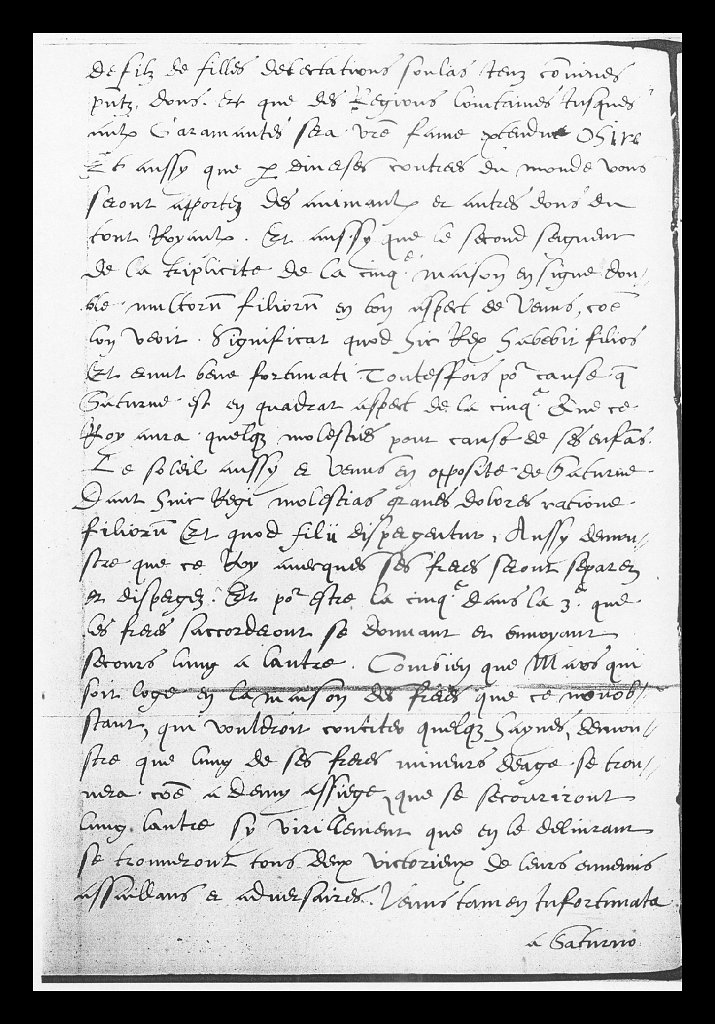 de filz de filles delectations soulas tenz cõmunes
pntz, dons. Et que des Regions loingtaines jusques
aulx Garamantes sera vre fame extendue Osire
Et aussy que p diverses contrees du monde vous
seront apportez des animaulx et autres dons du
tout Royaulx. Et aussy que le second seigneur
de la triplicite de la cinqe maison en signe dou-
ble multorũ filiorũ en bon aspect de Venus, coẽ
lon veoit. Significat quod hic Rex habebit filios
Et erunt bene fortunati. Toutesfois por cause q
Saturne est en quadrat aspect de la cinqe Que ce
Roy aura quelqz molesties pour cause de ses enfãs.
Le soleil aussy et Venus en opposite de Saturne
Dant huic Regi molestias graves dolores ratione
filiorũ Et quod filii dispergentur, Aussy demon-
stre que ce Roy avecques ses freres seront separez
et dispergez. Et por estre la cinqe dans la 3e que
les freres saccorderont se donnant et envoyant
secours lung a lautre. Combien que Mars qui
soit loge en la maison des freres que ce nonob-
stant, qui vouldroit conciter quelqz haynes, demon-
stre que lung de ses freres mineurs deage se trou-
vera coẽ a demy assiege, que se secoureront
lung lautre sy virillement que en le delivrant
se trouveront tous deux victorieux de leurs ennemis
assaillans et adversaires. Venus tamen Infortunata
a Saturno